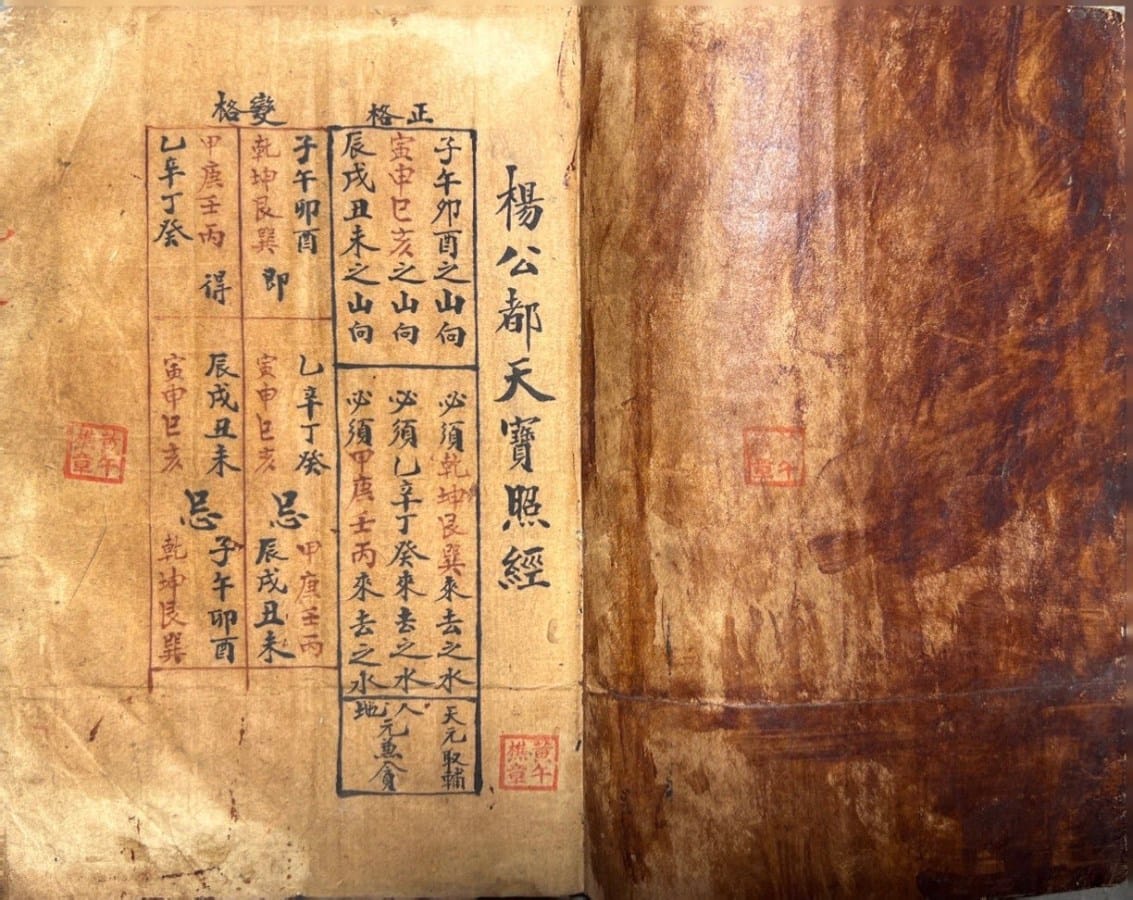 楊公都天寶照經
正格
子午卯酉之山向
必須乾坤艮巽來去之水
天元取輔
寅申巳亥之山向
必須乙辛丁癸來去之水
人元兼貪
辰戌丑未之山向
必須甲庚壬丙來去之水
地
變格
子午卯酉
乙辛丁癸
甲庚壬丙
乾坤艮巽
即
寅申巳亥
忌
辰戌丑未
甲庚壬丙
得
辰戌丑未
忌
子午卯酉
乙辛丁癸
寅申巳亥
乾坤艮巽
黃午樵章
黃午樵章